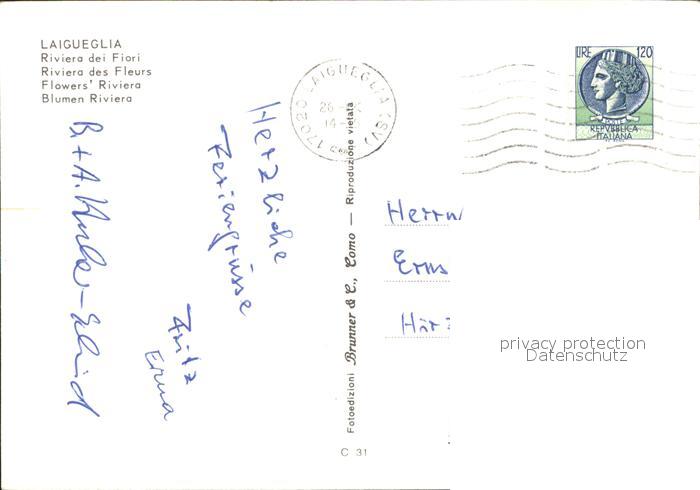 LAIGUEGLIA
Riviera dei Fiori
Riviera des Fleurs
Flowers' Riviera
Blumen Riviera
17020 LAIGUEGLIA (SV)
LIRE 120
POSTE
REPVBBLICA
ITALIANA
Herzliche
Feriengrüsse
Fritz
Erma
B. + A.
Fotoedizioni Brunner & C., Como — Riproduzione vietata
C 31
Herrn
Erns
privacy protection
Datenschutz